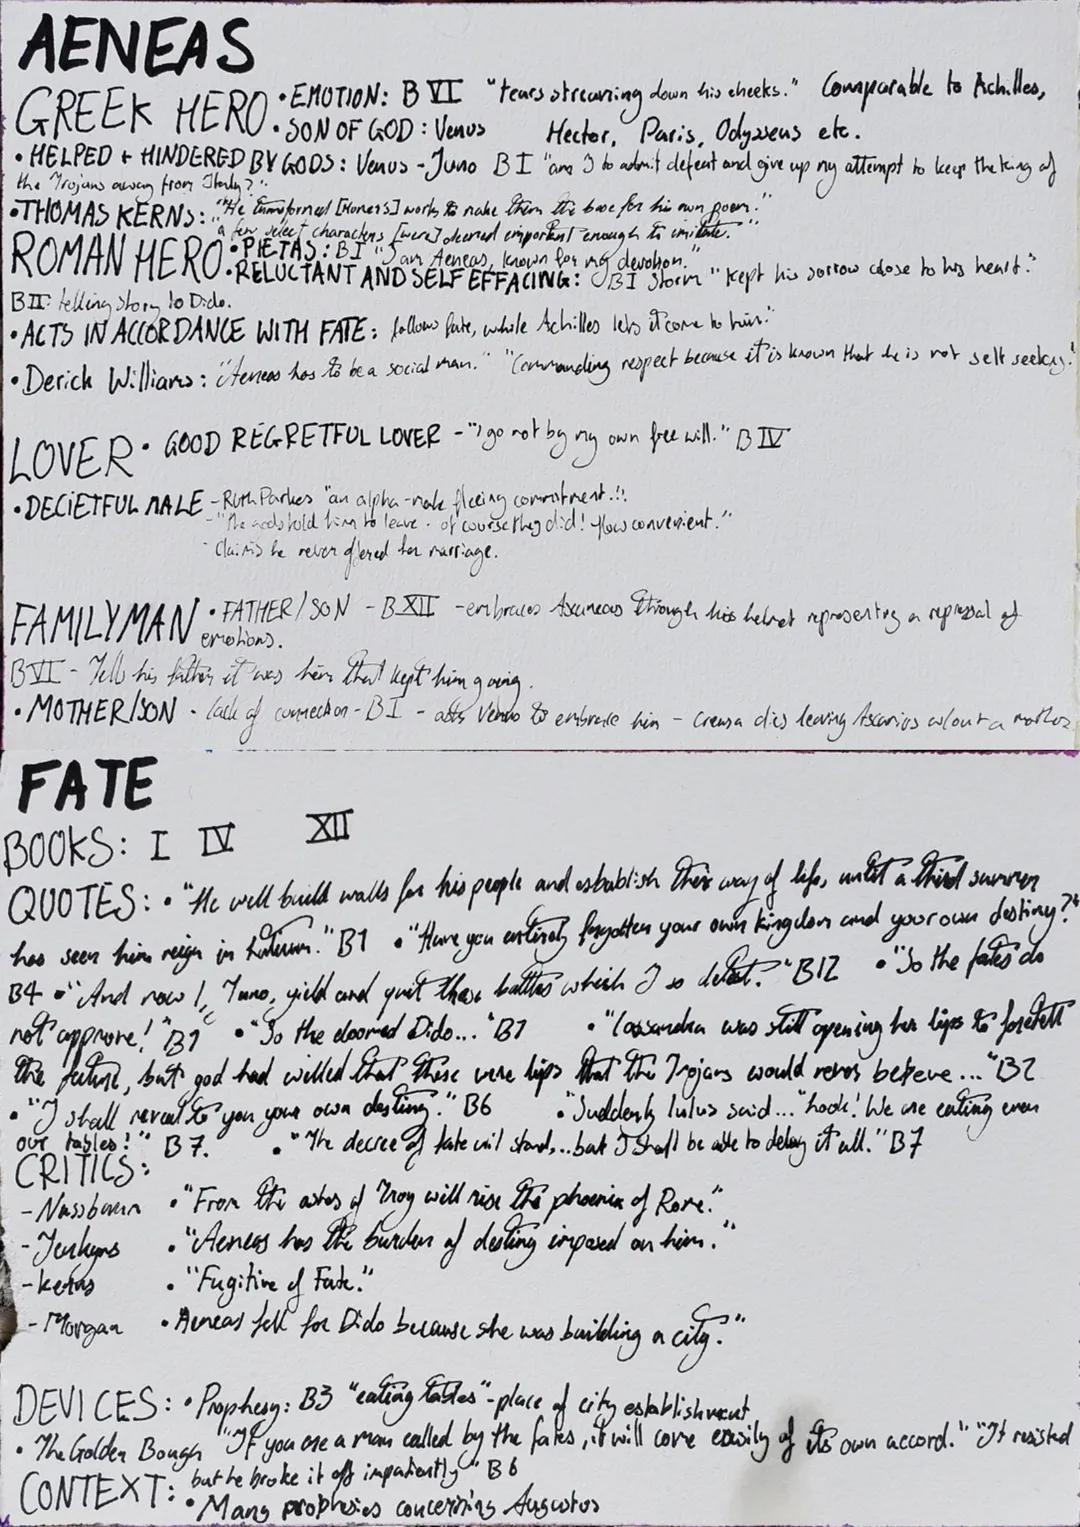 AENEAS
GREEK HERO • EMOTION: B VI "tears streaming down his cheeks." Comparable to Achilles,
• SON OF GOD: Venus Hector, Paris, Odysseus etc.
• HELPED + HINDERED BY GODS: Venus - Juno B I "am I to admit defeat and give up my attempt to keep the king of
the Trojans away from Italy?"
• THOMAS KERNS: "He transformed [Homer's] works to make them the base for his own poem."
"a few select characters [were] deemed important enough to imitate."
ROMAN HERO • PIETAS: B I "I am Aeneas, known for my devotion."
• RELUCTANT AND SELF EFFACING: B I Storm "kept his sorrow close to his heart."
B II: telling story to Dido.
• ACTS IN ACCORDANCE WITH FATE: follows fate, while Achilles lets it come to him."
• Derick Williams: "Aeneas has to be a social man." "Commanding respect because it is known that he is not self seeking."
LOVER • GOOD REGRETFUL LOVER - "I go not by my own free will." B IV
• DECIETFUL MALE - Ruth Parkes "an alpha-male fleeing commitment..!"
- "The gods told him to leave - of course they did! How convenient."
- Claims he never offered her marriage.
FAMILY MAN • FATHER/SON - B XII - embraces Ascaneas through his helmet representing a repressal of
emotions.
B VI - Tells his father it was him that kept him going.
• MOTHER/SON - lack of connection - B I - asks Venus to embrace him - Creusa dies leaving Ascanios w/out a mother
FATE
BOOKS: I IV XII
QUOTES: • "He will build walls for his people and establish their way of life, until a third summer
has seen him reign in Latium." B1 • "Have you entirely forgotten your own kingdom and your own destiny?"
B4 • "And now I, Juno, yield and quit these battles which I so detest." B12 • "So the fates do
not approve!" B1 • "So the doomed Dido..." B1 • "Cassandra was still opening her lips to foretell
the future, but god had willed that these were lips that the Trojans would never believe..." B2
• "I shall reveal to you your own destiny." B6 • "Suddenly Iulus said... "Look! We are eating even
our tables!" B7. • "The decree of fate will stand,...but I shall be able to delay it all." B7
CRITICS:
- Nussbaum • "From the ashes of Troy will rise the phoenix of Rome."
- Jenkyns • "Aeneas has the burden of destiny imposed on him."
- Kerns • "Fugitive of Fate."
- Morgan • Aeneas fell for Dido because she was building a city."
DEVICES: • Prophesy: B3 "eating tables" - place of city establishment
• The Golden Bough "If you are a man called by the fates, it will come easily of its own accord." "It resisted
but he broke it off impatiently" B6
CONTEXT: • Many prophesies concerning Augustus